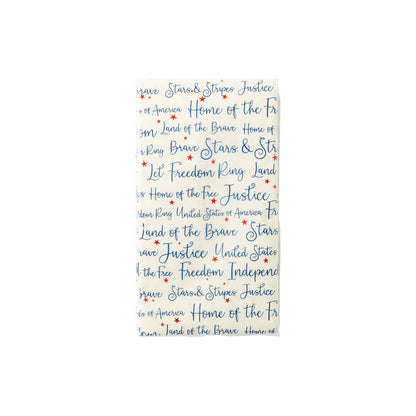 rave Stars & Stripes Justice
es of America Home of the Fr
dom Land of the Brave Home of
m Ring Brave Stars & Str
Let Freedom Ring Land
Home of the Free Justice
edom Ring United States of America Fr
Land of the Brave Stars
rave Justice United States
d the Free Freedom Independ
rave Stars & Stripes Justice
es of America Home of the Fr
om Land of the Brave Home